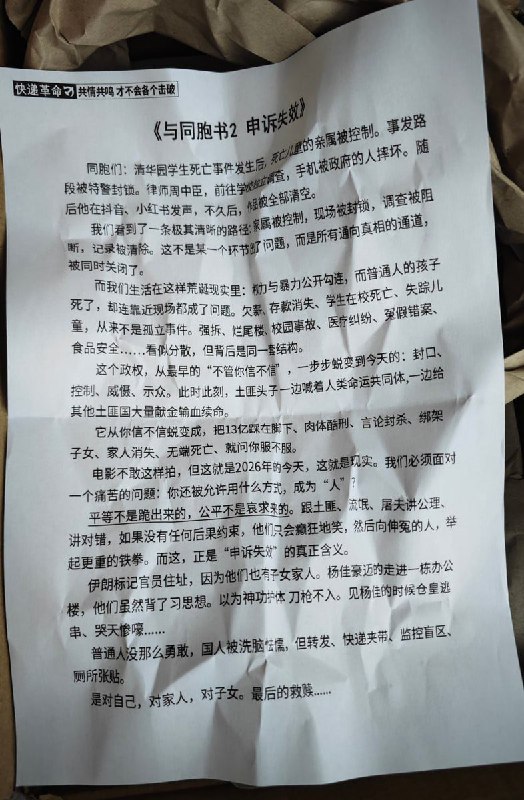 快递革命 共情共鸣 才不会各个击破
《与同胞书2 申诉失效》
同胞们：清华园学生死亡事件发生后，死亡儿童的亲属被控制。事发路
段被特警封锁。律师周中臣，前往学校独立调查，手机被政府的人摔坏。随
后他在抖音、小红书发声，不久后，作品被全部清空。
我们看到了一条极其清晰的路径：家属被控制，现场被封锁，调查被阻
断，记录被清除。这不是某一个环节的了问题，而是所有通向真相的通道，
被同时关闭了。
而我们生活在这样荒诞现实里：权力与暴力公开勾连，而普通人的孩子
死了，却连靠近现场都成了问题。欠薪、存款消失、学生在校死亡、失踪儿
童，从来不是孤立事件。强拆、烂尾楼、校园事故、医疗纠纷、冤假错案、
食品安全……看似分散，但背后是同一套结构。
这个政权，从最早的“不管你信不信”，一步步蜕变到今天的：封口、
控制、威慑、示众。此时此刻，土匪头子一边喊着人类命运共同体,一边给
其他土匪国大量献金输血续命。
它从你信不信蜕变成，把13亿踩在脚下、肉体酷刑、言论封杀、绑架
子女、家人消失、无端死亡、就问你服不服。
电影不敢这样拍，但这就是2026年的今天，这就是现实。我们必须面对
一个痛苦的问题：你还被允许用什么方式，成为“人”？
平等不是跪出来的，公平不是哀求来的。跟土匪、流氓、屠夫讲公理、
讲对错，如果没有任何后果约束，他们只会癫狂地笑，然后向伸冤的人，举
起更重的铁拳。而这，正是“申诉失效”的真正含义。
伊朗标记官员住址，因为他们也有子女家人。杨佳豪迈的走进一栋办公
楼，他们虽然背了习思想。以为神功护体 刀枪不入。见杨佳的时候仓皇逃
串、哭天惨嚎……
普通人没那么勇敢，国人被洗脑怯懦，但转发、快递夹带、监控盲区、
厕所张贴。
是对自己，对家人，对子女。最后的救赎……